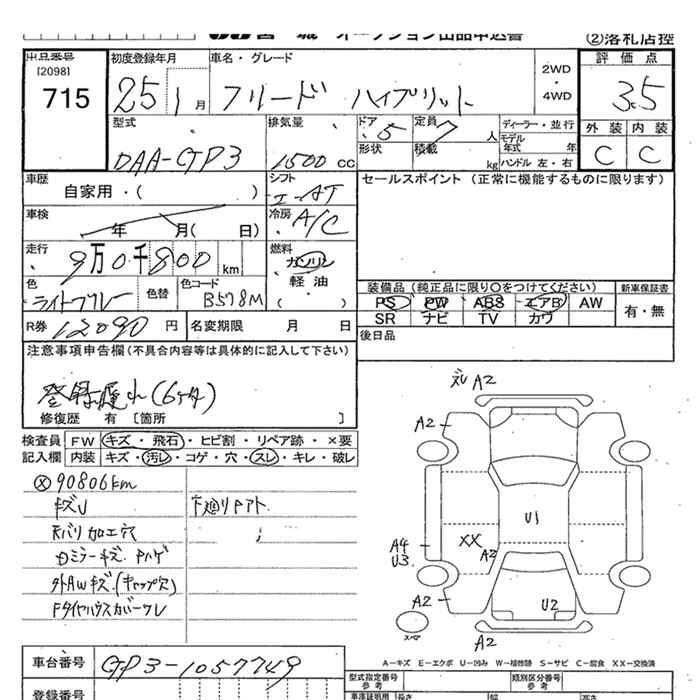 ②落札店控
出品番号
[2098]
715
初度登録年月
25 1月
車名・グレード
フリード ハイブリット
2WD
・
4WD
評価点
3.5
外装 内装
C C
型式
DAA-GP3
排気量
1500 CC
ドア
5
形状
定員
7 人
積載
kg
ディーラー・並行
モデル年式 年
ハンドル 左・右
車歴
自家用・( )
シフト
I-AT
セールスポイント (正常に機能するものに限ります)
車検
年 月( 日)
冷房
A/C
走行
9万0千800 km
燃料
ガソリン
軽油
( )
色
ライトブルー
色替
色コード
B578M
装備品 (純正品に限り○をつけてください)
新車保証書
PS PW ABS エアB AW
SR ナビ TV カワ
有・無
R券 12090 円
名変期限 月 日
後日品
注意事項申告欄(不具合内容等は具体的に記入して下さい)
登録遅れ(6ヶ月)
修復歴 有 [箇所 ]
検査員 FW キズ・飛石・ヒビ割・リペア跡・×要
記入欄 内装 キズ・汚レ・コゲ・穴・スレ・キレ・破レ
ⓧ90806km
キズU
下廻りサビト
天バリ加工穴
Dミラーキズ Pハゲ
外AWキズ(キャップ欠)
Fタイヤハウスカバーワレ
ズレ A2
A2
U1
XX
A2
A4
U3
A2
U2
A2
スペア
A-キズ E-エクボ U-凹み W-補修跡 S-サビ C-腐食 XX-交換済
車台番号 GP3-1057749
登録番号
型式指定番号
参考
類別区分番号
参考
車庫証明用 長さ 幅 高さ